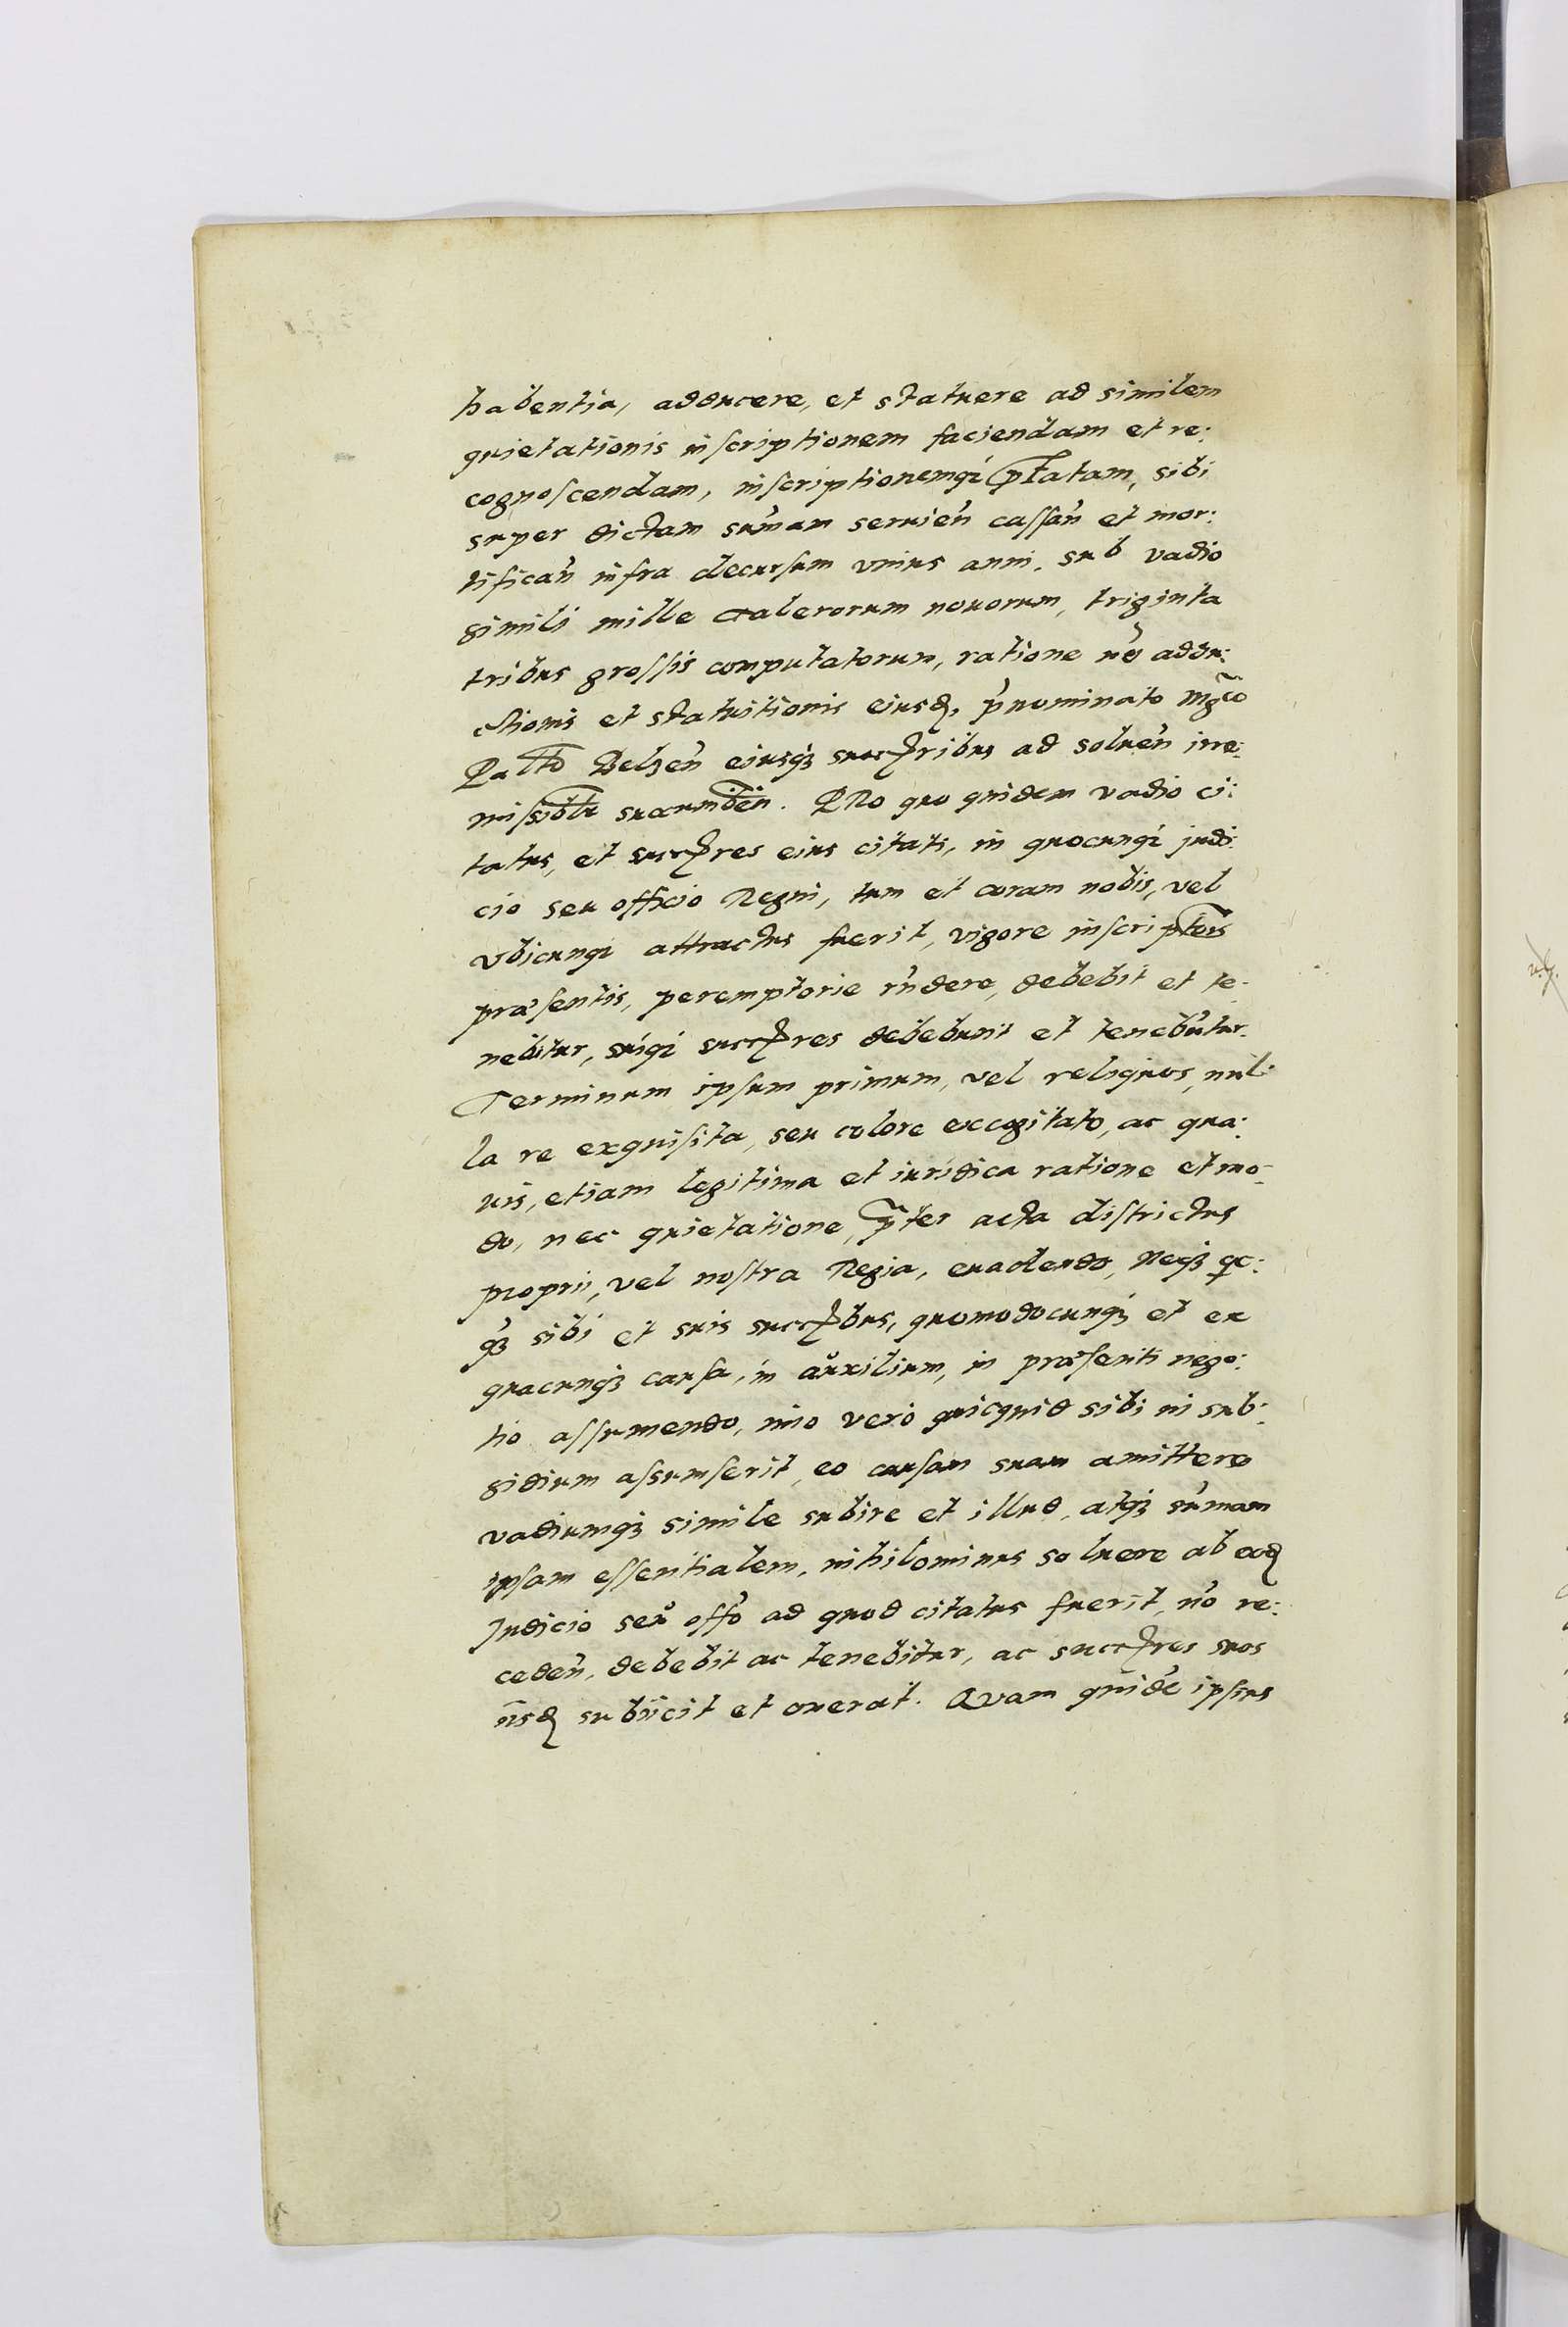 habentia, adducere, et statuere ad similem
quietationis inscriptionem faciendam et re:
cognoscendam, inscriptionemq́ p̃tatam, sibi
super dictam sum̃am seruień cassań et mor:
tificań infra decursum vnius anni. sub vadio
simili mille talerorum nouorum, triginta
tribus grossis computatorum, ratione nõ addu:
ctionis et statuitionis eiusdȩ, p̃nominato Mgco
Palto Belzeń eiusq́ȝ succribus ad solueń irre:
missiblr succumbeń. PRo quo quidem vadio ci:
tatus, et succres eius citati, in quocunq́ judi:
cio seu officio Regni, tum et coram nobis, vel
vbicunq́ attractus fuerit, vigore inscriptois
præsentis, peremptorie rńdere, debebit et te-
nebitur, suiq́ succres debebunt et tenebũtur.
Terminum ipsum primum, vel reliquos, nul:
la re exquisita, seu colore excogitato, ac qua:
uis, etiam legitima et iuridica ratione et mo-
do, nec quietatione, p̃ter acta districtus
proprii, vel nostra Regia, euadendo, Neqȝ qc:
qȝ sibi et suis succbus, quomodocunqȝ et ex
quacunqȝ causa, in auxilium, in præsenti nego:
tio assumendo, imo vero quicquid sibi in sub:
sidium assumserit, eo causam suam amittere
vadiumqȝ simile subire et illud, atqȝ sum̃am
ipsam essentialem, nihilominus soluere ab eodȩ
Judicio seu offo ad quod citatus fuerit, nõ re:
cedeń, debebit ac tenebitur, ac succres suos
iisdȩ subiicit et onerat. Quam quidẽ ipsius